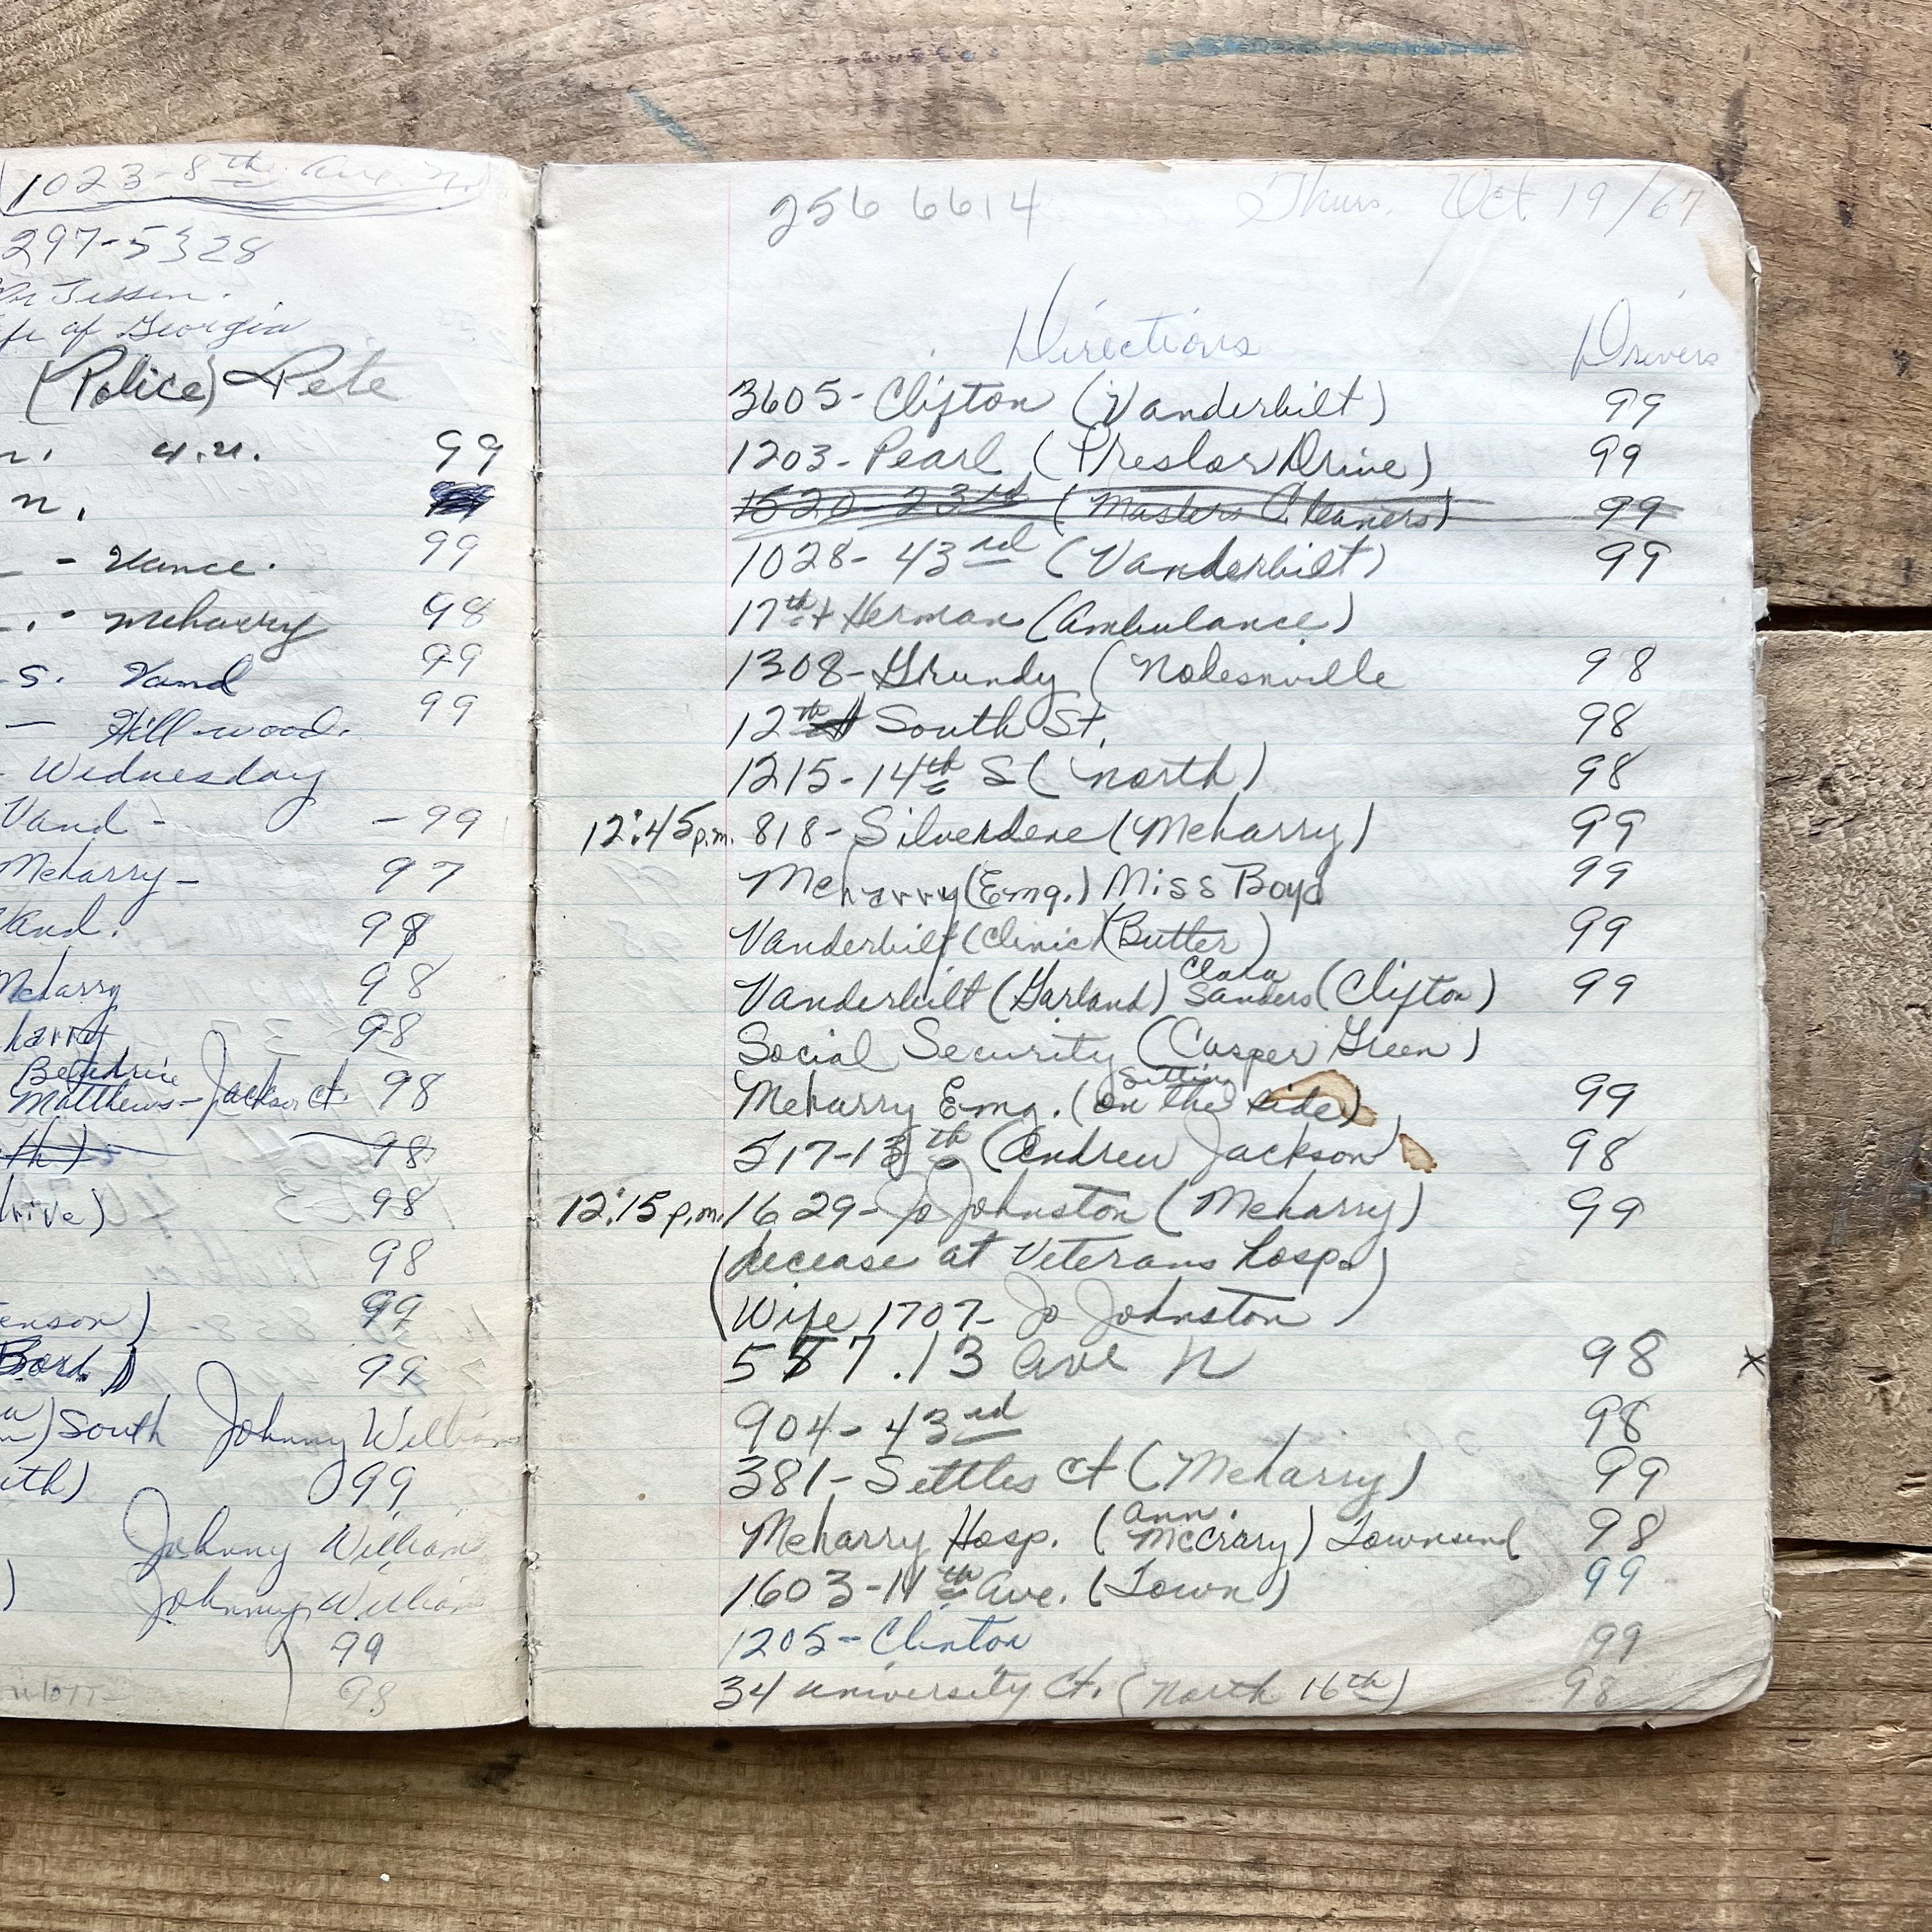 1023-8th Ave. N.
297-5328
of Georgia
(Police) Pete
99
n.
- Vance. 99
- Meharry 98
S. Vand 99
- Hillwood. 99
- Wednesday
Vand - - 99
Meharry - 97
Vand. 98
Meharry 98
harry 98
Matthews - Jackson Ct. 98
th) 98
rive) 98
98
enson) 99
Bord.) 99
) South Johnny William
ith) 99
Johnny Williams
) Johnny William
99
98
256 6614 Thurs. Oct 19/67
Directions Drivers
3605- Clifton (Vanderbilt) 99
1203- Pearl (Preslar Drive) 99
1520-23rd (Masters Cleaners) 99
1028- 43rd (Vanderbilt) 99
17th + Herman (Ambulance)
1308- Grundy (Nolesnville 98
12th South St. 98
1215-14th S (north) 98
12:45 p.m. 818- Silverdene (Meharry) 99
Meharry (Emg.) Miss Boyd 99
Vanderbilt (Clinic) (Butler) 99
Vanderbilt (Garland) Clara Sanders (Clifton) 99
Social Security (Casper Green)
Meharry Emg. (Sitting on the side) 99
517-13th (Andrew Jackson) 98
12:15 p.m. 1629- Jo Johnston (Meharry) 99
(decease at Veterans Hosp.)
(Wife 1707- Jo Johnston)
557.13 Ave N 98 x
904- 43rd 98
381- Settles Ct (Meharry) 99
Meharry Hosp. (Ann McCrary) Townsend 98
1603-11th Ave. (Town) 99
1205- Clinton 99
34 University Ct. (North 16th) 98